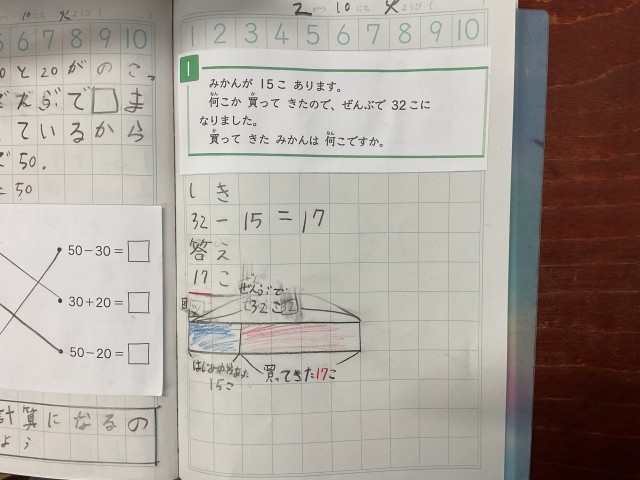 10にち 火ようび
5 6 7 8 9 10
と20がのこっ
で□ま
ているから
50.
= 50
50-30=
30+20=
50-20=
計算になるの
2がつ 10にち 火ようび( )
1 2 3 4 5 6 7 8 9 10
1
みかんが 15こ あります。
何こか 買って きたので、ぜんぶで 32こに
なりました。
買って きた みかんは 何こですか。
しき
32-15=17
答え
17こ
図
ぜんぶで
32こ
15こ
買ってきた17こ